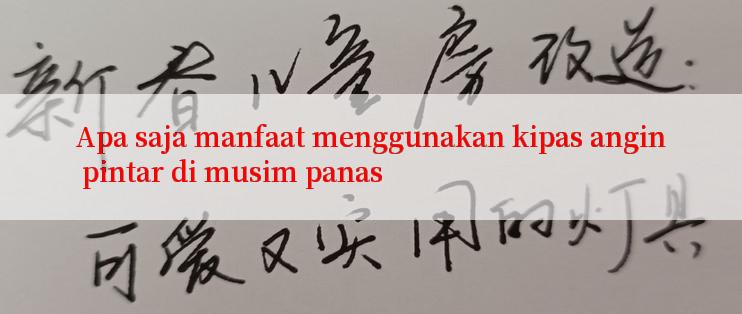 新春儿童房改造:
Apa saja manfaat menggunakan kipas angin
pintar di musim panas
可爱又实用的灯具